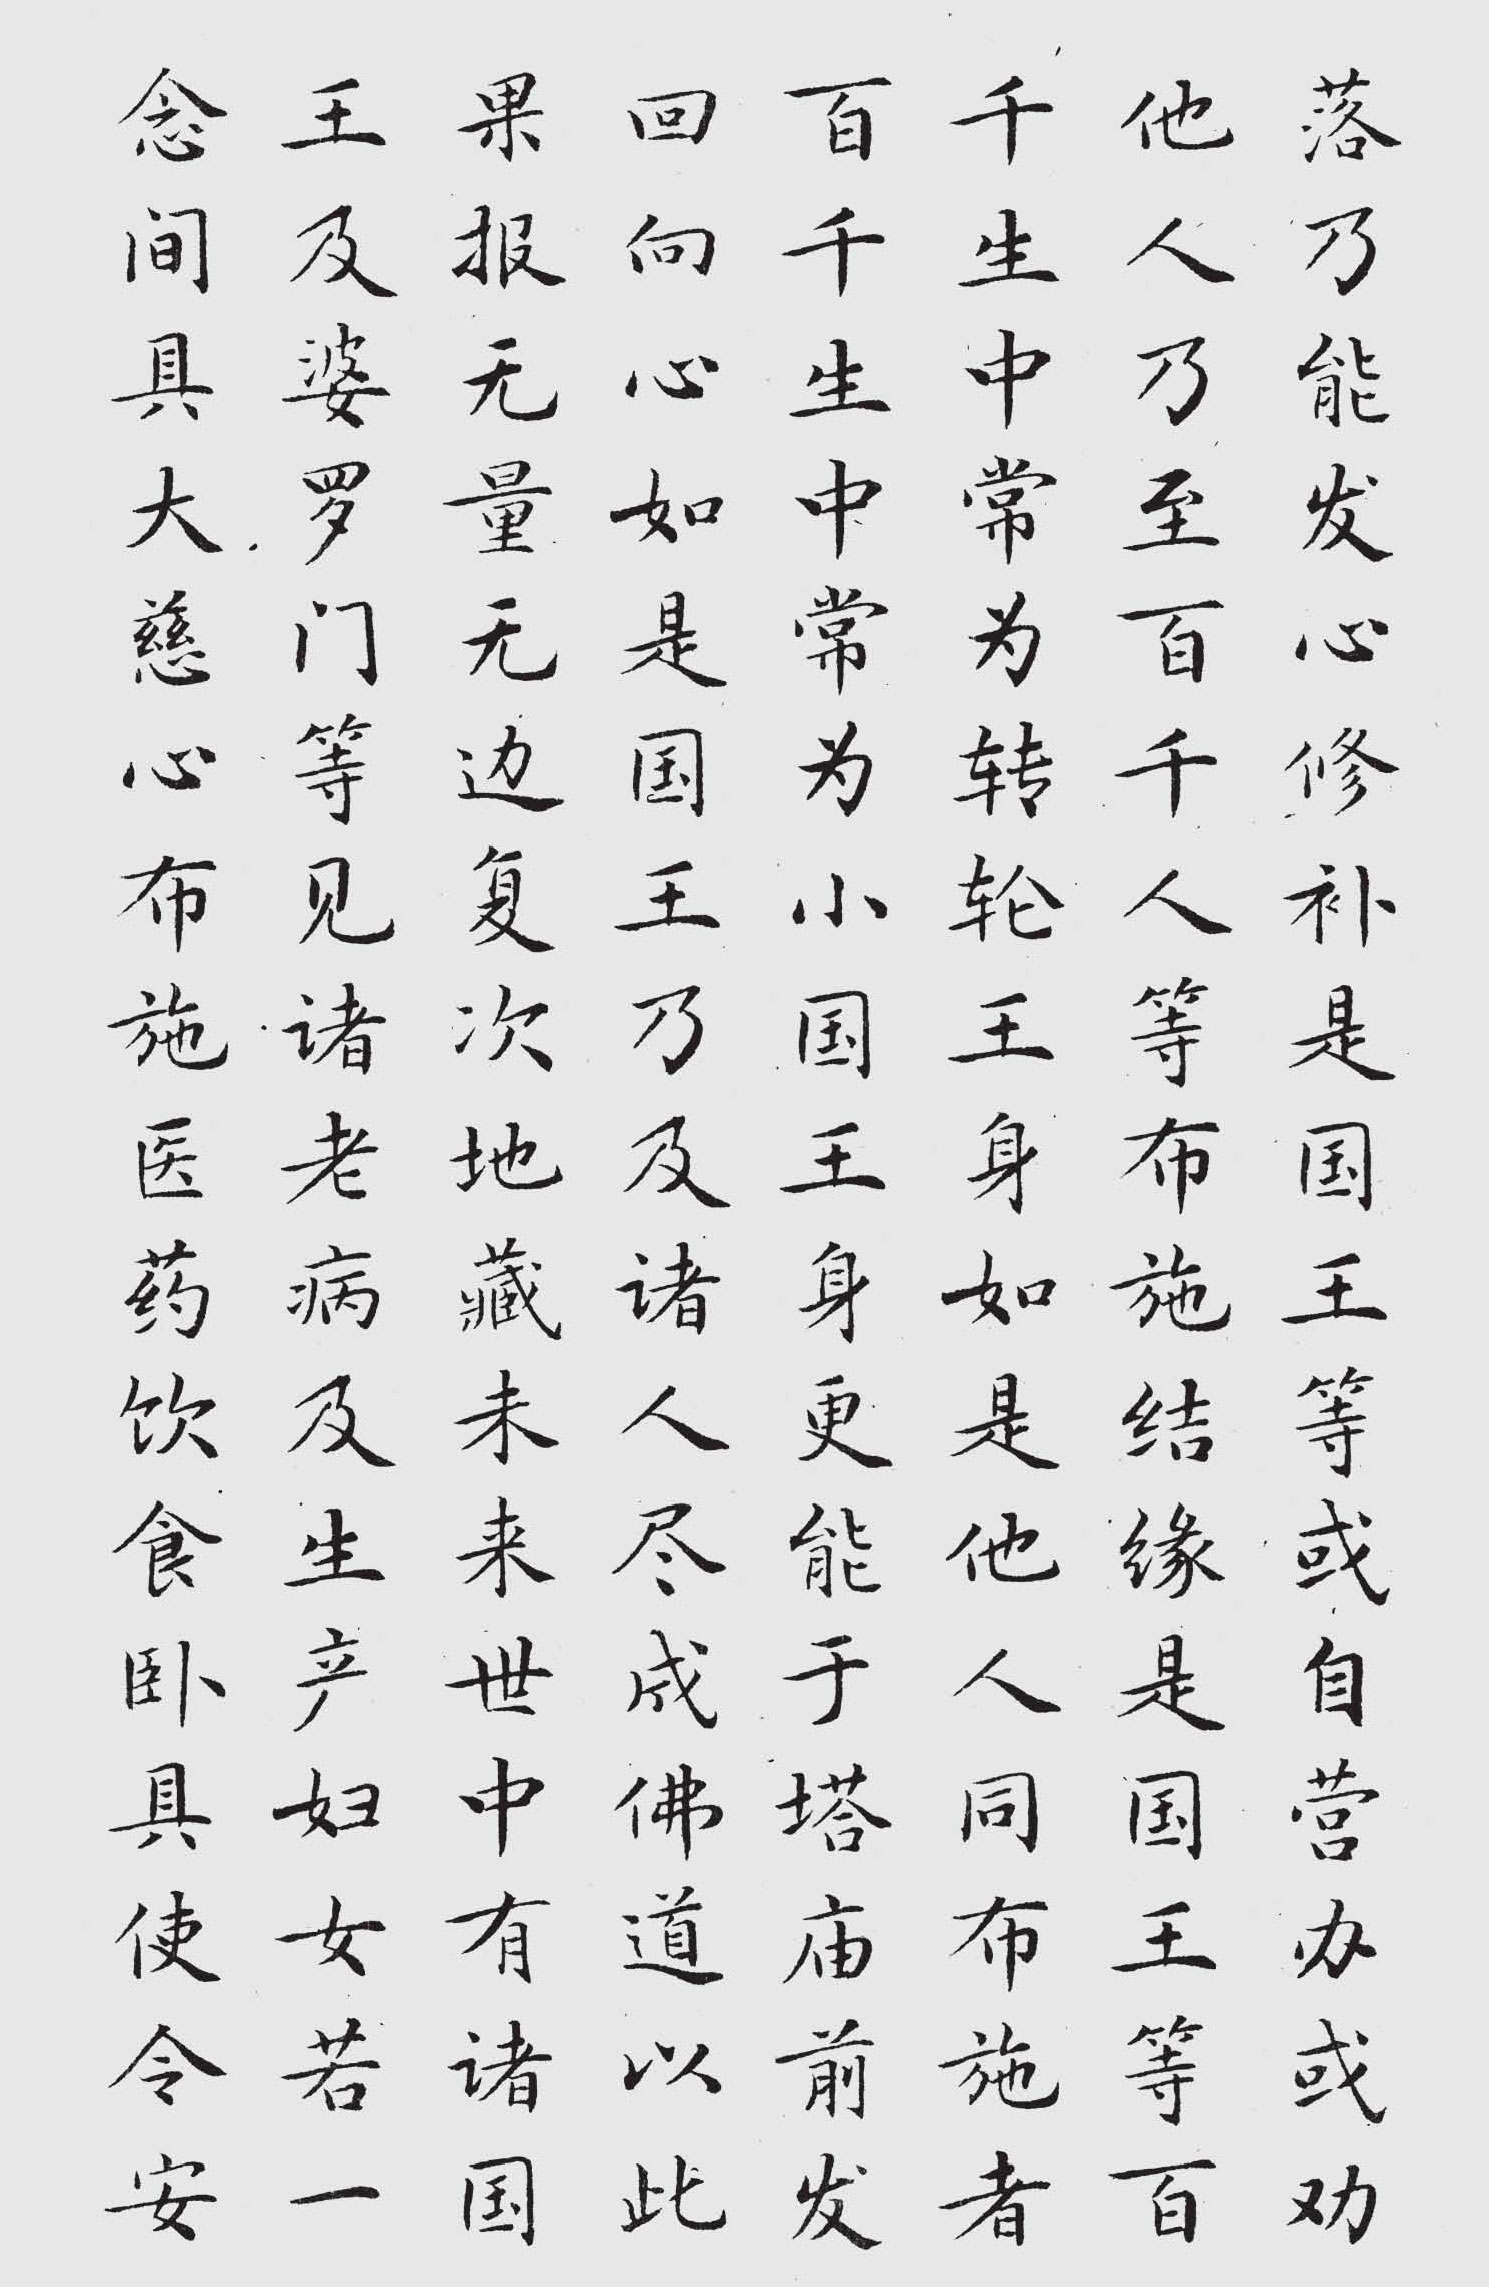 落乃能发心修补是国王等或自营办或劝
他人乃至百千人等布施结缘是国王等百
千生中常为转轮王身如是他人同布施者
百千生中常为小国王身更能于塔庙前发
回向心如是国王乃及诸人尽成佛道以此
果报无量无边复次地藏未来世中有诸国
王及婆罗门等见诸老病及生产妇女若一
念间具大慈心布施医药饮食卧具使令安